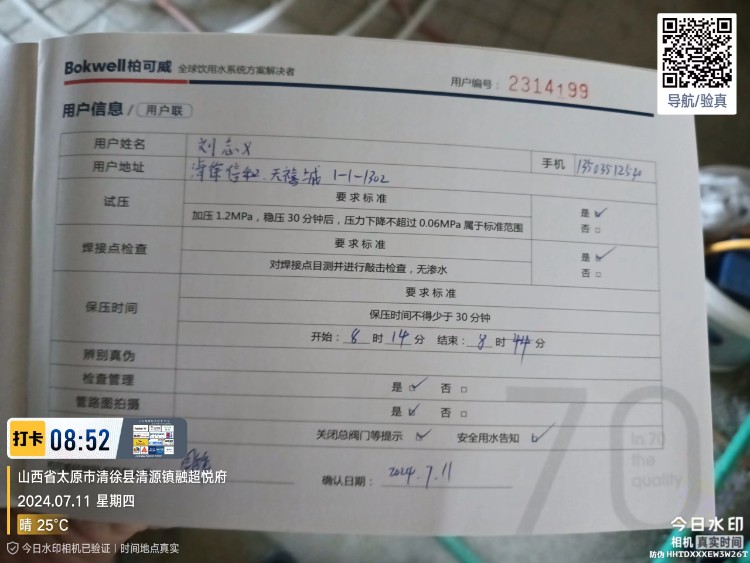 Bokwell柏可威 全球饮用水系统方案解决者
用户编号：2314199
导航/验真
用户信息 / 用户联
用户姓名 刘志 手机 13503512530
用户地址 清徐信和 天禧城 1-1-1302
试压 要求标准
加压 1.2MPa，稳压 30 分钟后，压力下降不超过 0.06MPa 属于标准范围
是 ☑
否 □
焊接点检查 要求标准
对焊接点目测并进行敲击检查，无渗水
是 ☑
否 □
保压时间 要求标准
保压时间不得少于 30 分钟
开始：8 时 14 分 结束：8 时 44 分
辨别真伪
检查管理 是 ☑ 否 □
管路图拍摄 是 ☑ 否 □
关闭总阀门等提示 ☑ 安全用水告知 ☑
确认日期：2024.7.11
70
In 70
the
quality
打卡 08:52
山西省太原市清徐县清源镇融超悦府
2024.07.11 星期四
晴 25°C
今日水印相机已验证 | 时间地点真实
今日水印
相机 真实时间
防伪 HHTDXXXEW3W26T